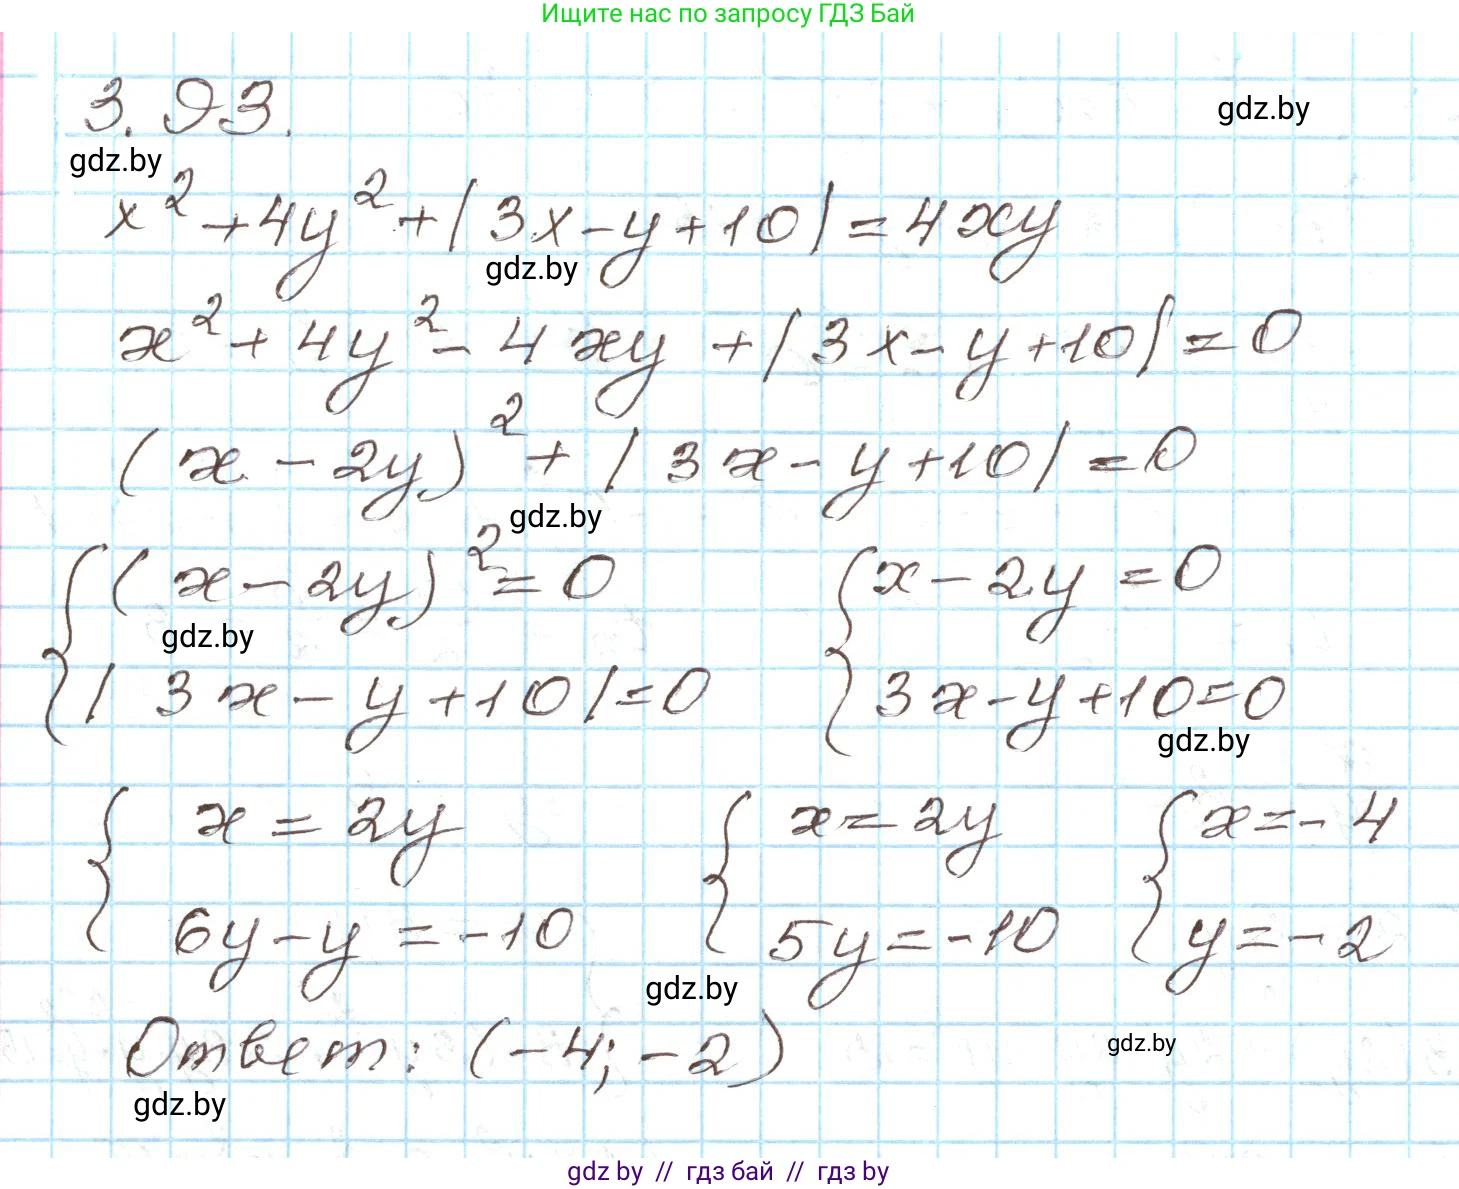 Ищите нас по запросу ГДЗ Бай
3.93.
gdz.by
gdz.by
x² + 4y² + |3x - y + 10| = 4xy
gdz.by
x² + 4y² - 4xy + |3x - y + 10| = 0
(x - 2y)² + |3x - y + 10| = 0
gdz.by
{ (x - 2y)² = 0 { x - 2y = 0
gdz.by
|3x - y + 10| = 0 3x - y + 10 = 0
gdz.by
{ x = 2y { x = 2y { x = -4
6y - y = -10 5y = -10 y = -2
gdz.by
Ответ: (-4; -2)
gdz.by
gdz.by
gdz by // гдз бай // гдз by